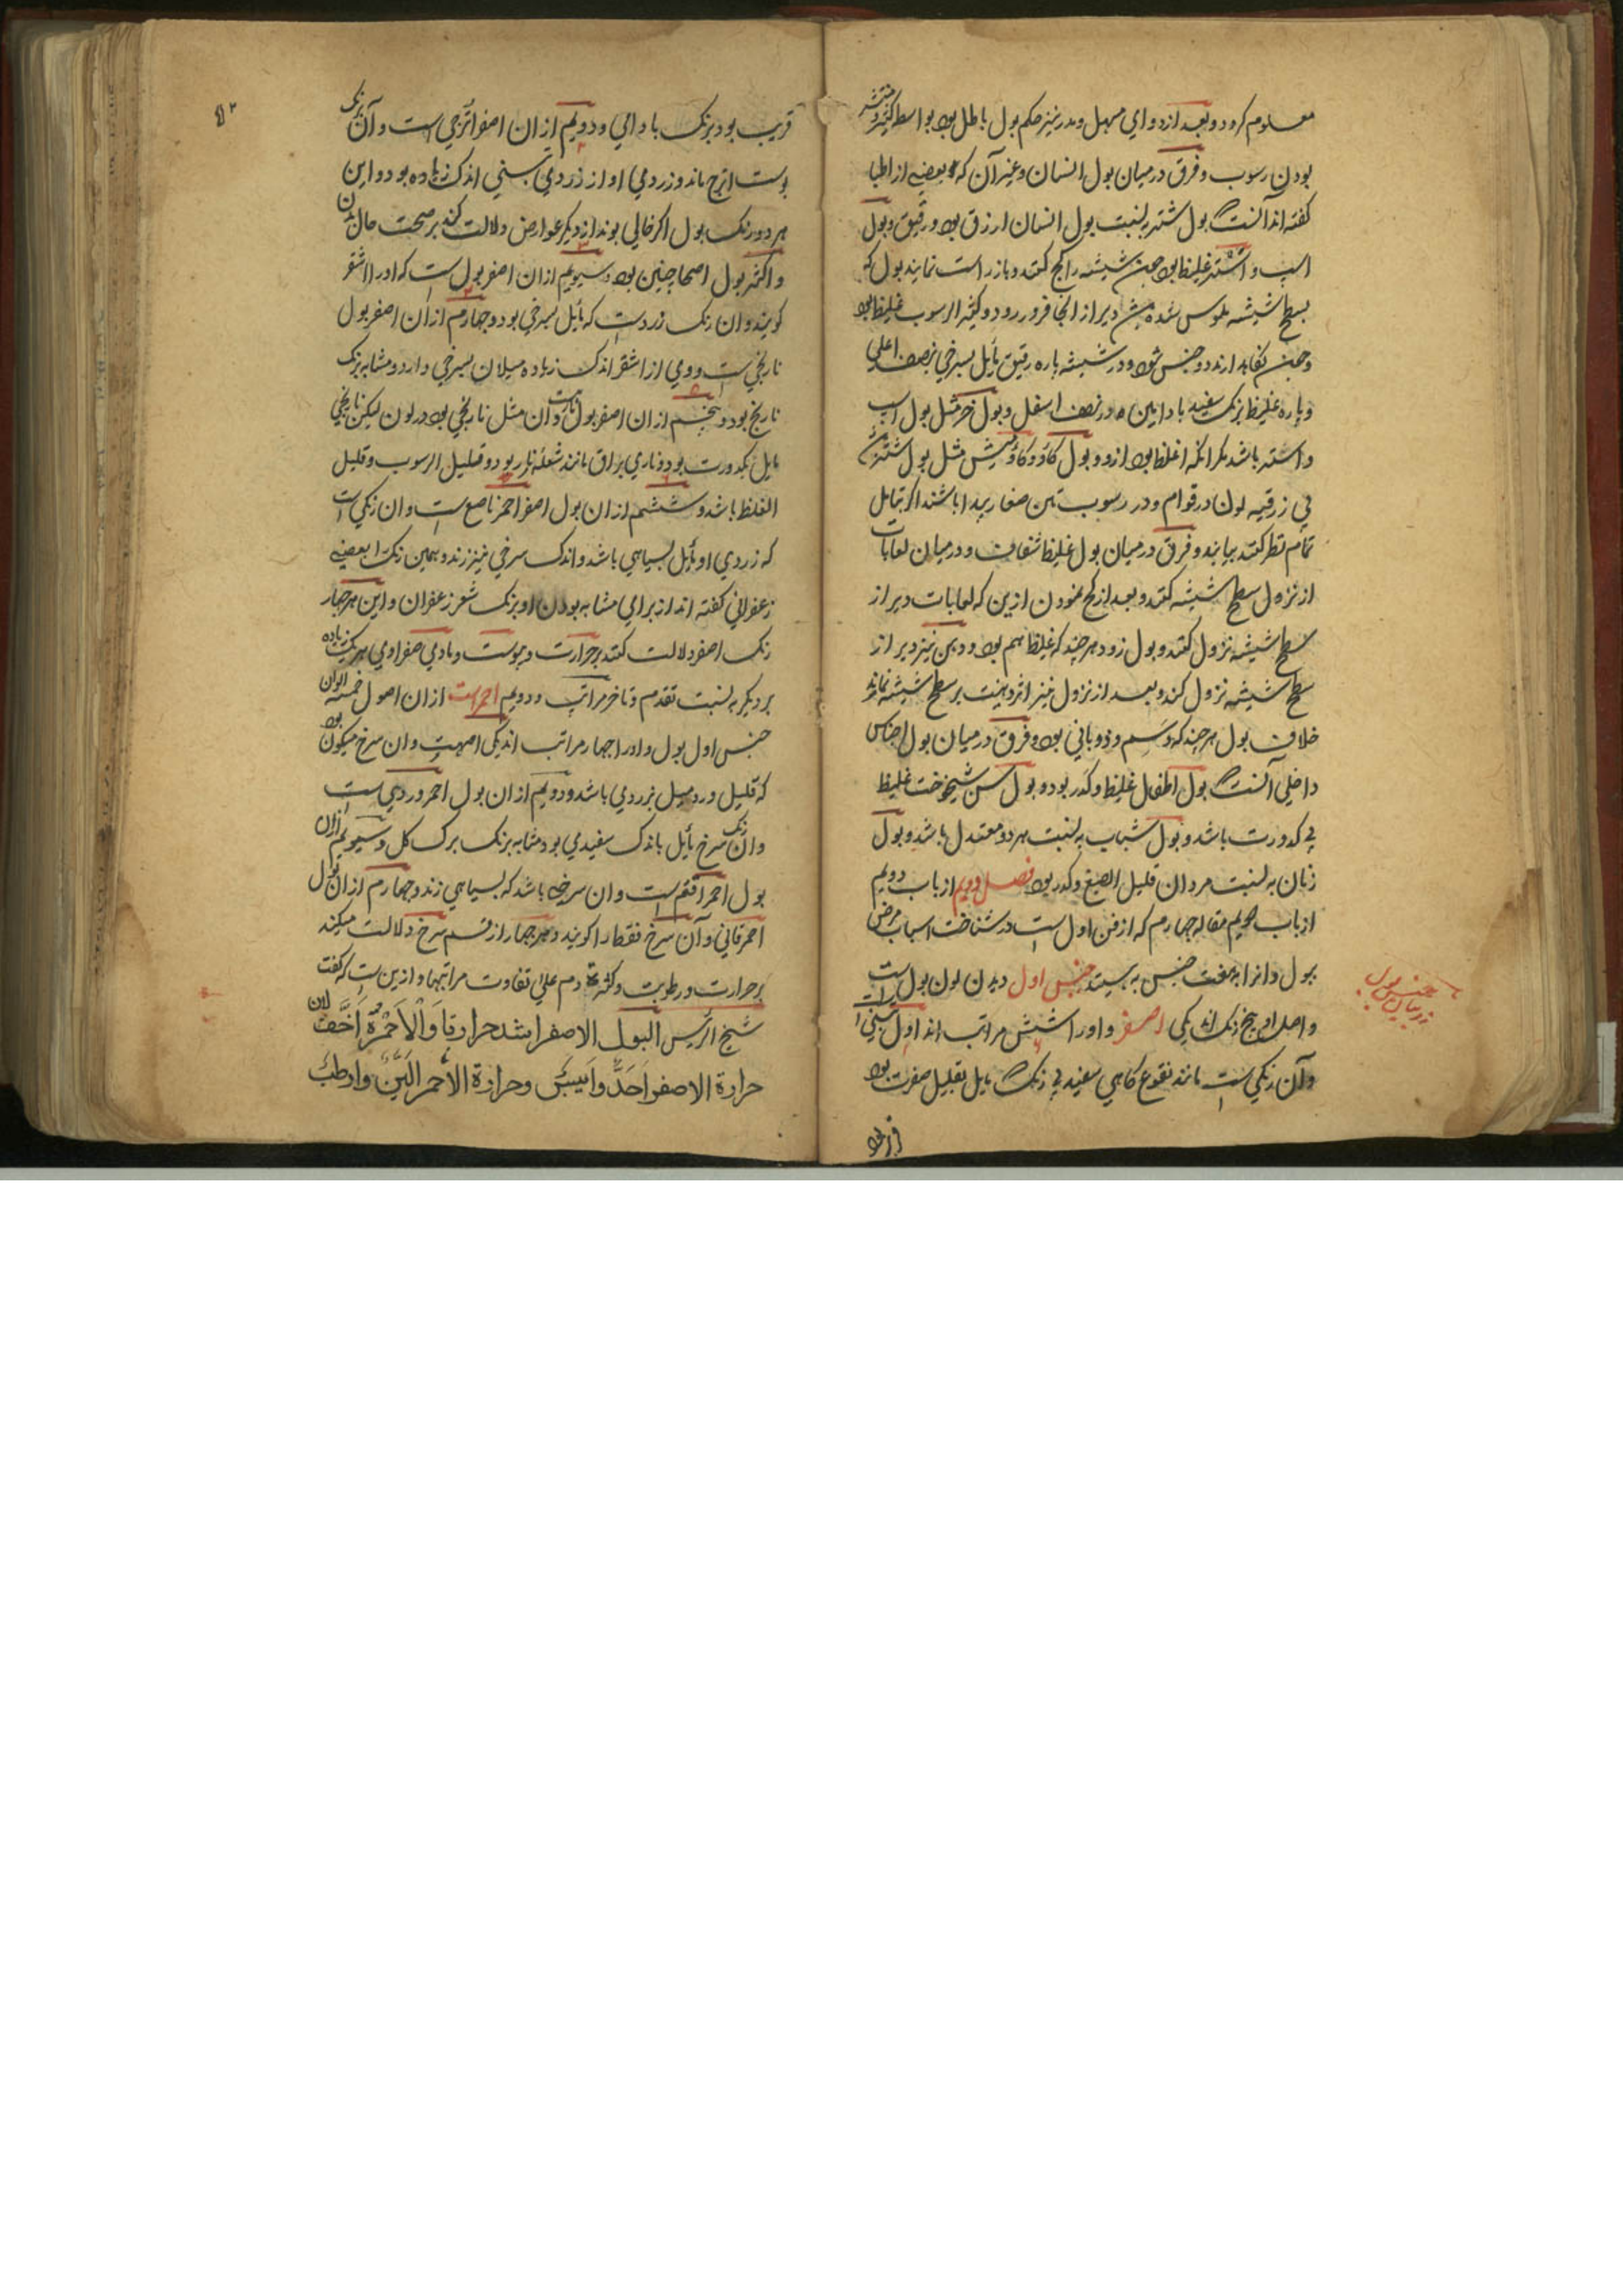 معلوم کرود و بعد از دوای مسهل و مدر نیز حکم بول باطل بود بواسطه
بودن رسوب و فرق در میان بول انسان و غیر آن که بعضی از اطبا
گفته اند آنست بول شتر به نسبت بول انسان ارزق بود و رقیق و بول
اسب و اشتر غلیظ بود چون شیشه را کج کنند و باز راست نمایند بول که
بسطح شیشه ملموس شده دیر از انجا فرو رود و کثیر الرسوب غلیظ بود
و چون نگاه دارند دو جنس شود و در شیشه پاره رقیق مایل بسرخی بنصف اعلی
و پاره غلیظ برنک سفید باد این در نصف اسفل و بول خر مثل بول اسپ
و اشتر باشد مکر انکه اغلظ بود از و و بول کاو و کاومیش مثل بول شتر
بی زرقیه لون در قوام و در رسوب تبن صغار پیدا باشند اکر بتامل
تمام نظر کنند بیابند و فرق در میان بول غلیظ شفاف و درمیان لعابات
از نزول سطح شیشه کنند و بعد از کج نمودن ازین که لعابات دیر از
سطح شیشه نزول کنند و بول زود هرچند که غلیظ هم بود و دهن نیز دیر از
سطح شیشه نزول کند و بعد از نزول نیز اثر دهنیت بر سطح شیشه نماید
خلاف بول هرچند که دسم و ذوبانی بود و فرق در میان بول اجناس
داخلی آنست بول اطفال غلیظ و کدر بود و بول سن شیخوخت غلیظ
بی کدورت باشد و بول شباب به نسبت هر دو معتدل باشد و بول
زنان به نسبت مردان قلیل الصبغ و کدر بود فصل دویم از باب دویم
از باب مقاله چهارم که از فن اول است در شناخت اسباب مرض
ببول و انرا بهفت جنس به بینند جنس اول دیدن لون بول است
و اصل او پنج رنک اند یکی اصفر و او را شش مراتب اند اول تبنی است
و آن رنکی است مانند نقوع کاهی سفید بی رنک مایل بقلیل صفرت بود
در بیان جنس بول
۵۲
قریب بود برنک بادامی و دویم از ان اصفر اترجی است و آن برنک
پوست اترج ماند و زردی او از زردی تبنی اندک زیاده بود و این
هر دو رنک بول اکر خالی بوند از دیکر عوارض دلالت کند بر صحت حال بدن
و اکثر بول اصحا چنین بود و سیویم ازان اصفر بول است که او را اشقر
کویند و ان رنک زرد است که مایل بسرخی بود و چهارم از ان اصفر بول
نارنجی است و وی از اشقر اندک زیاده میلان بسرخی دارد و مشابه برنک
نارنج بود و پنجم از ان اصفر بول ناریست و ان مثل نارنجی بود در لون لیکن نارنجی
مایل بکدورت بود و ناری براق مانند شعله نار بود و قلیل الرسوب و قلیل
الغلظ باشد و ششم از ان بول اصفر احمر ناصع است و ان رنکی است
که زردی او مایل بسیاهی باشد و اندک سرخی نیز زند و همین رنک را بعضی
زعفرانی کفته اند از برای مشابه بودن او برنک شعر زعفران و این هر چهار
رنک اصفر دلالت کنند بر حرارت و یبوست و مادی صفراوی هر یک زیاده
بر دیکر به نسبت تقدم و تاخر مراتب و دویم احمر است ازان اصول خمسه الوان
جنس اول بول و او را چهار مراتب اند یکی اصهب و ان سرخ میکون بود
که قلیل ورد میل بزردی باشد و دویم از ان بول احمر وردی است
وان رنک سرخ مایل باندک سفیدی بود مشابه برنک برک کل و سیویم ازان
بول احمر اقتم است و ان سرخی باشد که بسیاهی زند و چهارم از ان بول
احمر قانی و آن سرخ فقط را کویند و هر چهار از قسم سرخ دلالت میکند
بر حرارت و رطوبت و کثرة دم علی تفاوت مراتبها و ازین است که کفت
شیخ الرئیس البول الاصفر اشد حرارة و الاحمر اخف لان
حرارة الاصفر احد وایبس وحرارة الاحمر الین وارطب